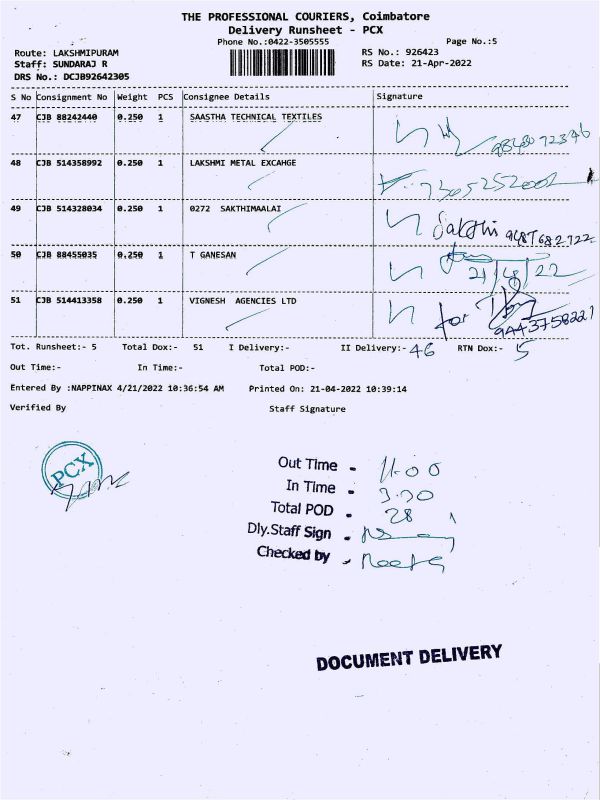 THE PROFESSIONAL COURIERS, Coimbatore
Delivery Runsheet - PCX
Phone No.:0422-3505555 Page No.:5
Route: LAKSHMIPURAM RS No.: 926423
Staff: SUNDARAJ R RS Date: 21-Apr-2022
DRS No.: DCJB92642305
S No Consignment No Weight PCS Consignee Details Signature
47 CJB 88242440 0.250 1 SAASTHA TECHNICAL TEXTILES
48 CJB 514358992 0.250 1 LAKSHMI METAL EXCAHGE
49 CJB 514328034 0.250 1 0272 SAKTHIMAALAI Sakthi 9487682722
50 CJB 88455035 0.250 1 T GANESAN 21/4/22
51 CJB 514413358 0.250 1 VIGNESH AGENCIES LTD for 9443758221
Tot. Runsheet:- 5 Total Dox:- 51 I Delivery:- II Delivery:- 46 RTN Dox:- 5
Out Time:- In Time:- Total POD:-
Entered By :NAPPINAX 4/21/2022 10:36:54 AM Printed On: 21-04-2022 10:39:14
Verified By Staff Signature
PCX
Out Time - 11.00
In Time - 3.30
Total POD - 28
Dly.Staff Sign -
Checked by -
DOCUMENT DELIVERY